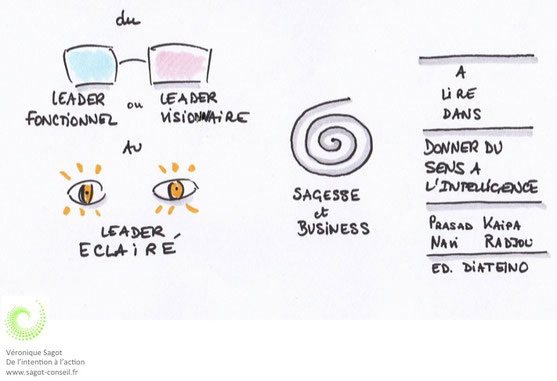 du
LEADER FONCTIONNEL
ou
LEADER VISIONNAIRE
AU
LEADER
ECLAIRÉ
SAGESSE
et
BUSINESS
A
LIRE
DANS
DONNER DU
SENS A
L'INTELLIGENCE
PRASAD KAIPA
NAVI RADJOU
ED. DIATEINO
Véronique Sagot
De l'intention à l'action
www.sagot-conseil.fr